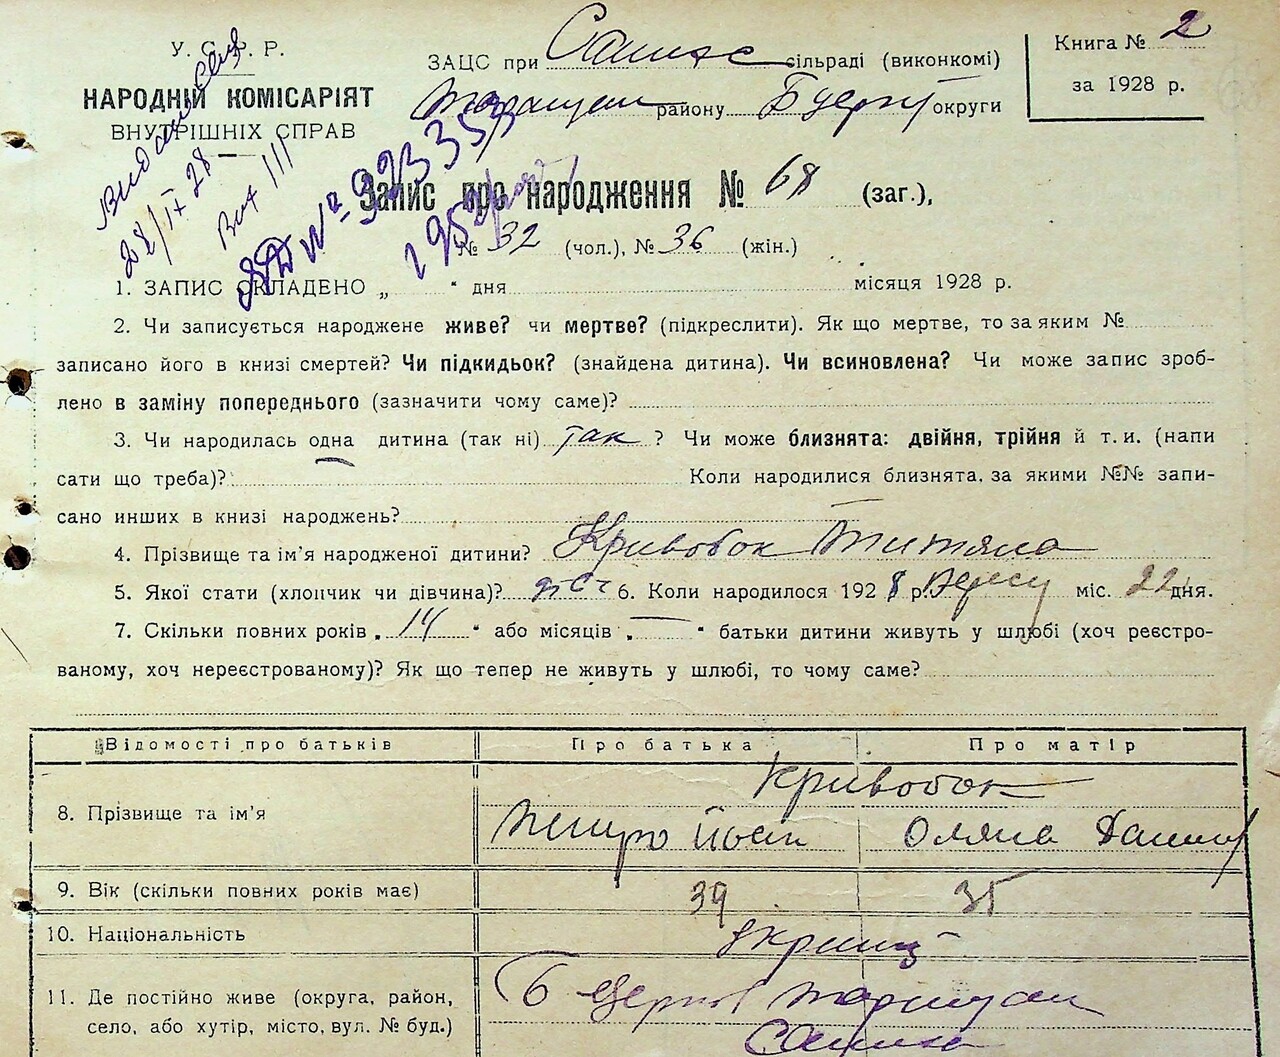 У. С. Р. Р.
НАРОДНІЙ КОМІСАРІЯТ
ВНУТРІШНІХ СПРАВ
ЗАЦС при сільраді (виконкомі)
району округи
Книга № 2
за 1928 р.
28/IX 28
Запис про народження № 68 (заг.),
№ 32 (чол.), № 36 (жін.)
1. ЗАПИС СКЛАДЕНО „ “ дня місяця 1928 р.
2. Чи записується народжене живе? чи мертве? (підкреслити). Як що мертве, то за яким №
записано його в книзі смертей? Чи підкидьок? (знайдена дитина). Чи всиновлена? Чи може запис зроб-
лено в заміну попереднього (зазначити чому саме)?
3. Чи народилась одна дитина (так ні) так ? Чи може близнята: двійня, трійня й т. и. (напи
сати що треба)? Коли народилися близнята, за якими №№ запи-
сано инших в книзі народжень?
4. Прізвище та ім'я народженої дитини? Кривобок
5. Якої стати (хлопчик чи дівчина)? 6. Коли народилося 1928 р. міс. 22 дня.
7. Скільки повних років „ 14 “ або місяців „ — “ батьки дитини живуть у шлюбі (хоч реєстро-
ваному, хоч нереєстрованому)? Як що тепер не живуть у шлюбі, то чому саме?
Відомості про батьків Про батька Про матір
Кривобок
8. Прізвище та ім'я Петро Йван Оляна
9. Вік (скільки повних років має) 39 35
10. Національність
11. Де постійно живе (округа, район,
село, або хутір, місто, вул. № буд.)